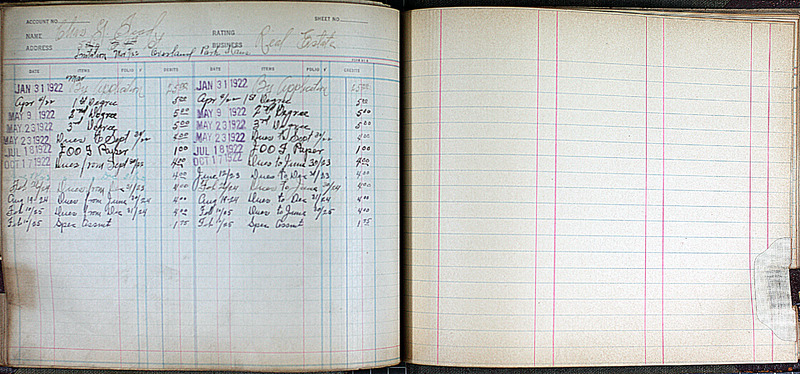 ACCOUNT NO. SHEET NO.
NAME Chas. RATING
ADDRESS BUSINESS Real Estate
Overland Park Kans
DATE ITEMS FOLIO ✓ DEBITS DATE ITEMS FOLIO ✓ CREDITS
JAN 31 1922 By Application 25 00 JAN 31 1922 By Application 25 00
Apr 4/22 1st Degree 5 00 Apr 4/22 1st Degree 5 00
MAY 9 1922 2nd Degree 5 00 MAY 9 1922 2nd Degree 5 00
MAY 23 1922 3rd Degree 5 00 MAY 23 1922 3rd Degree 5 00
MAY 23 1922 Dues to Sept MAY 23 1922 Dues to Sept
JUL 18 1922 IOOF Paper 1 00 JUL 18 1922 IOOF Paper 1 00
OCT 17 1922 Dues from Sept 4 00 OCT 17 1922 Dues to June 30/23 4 00
4 00 June 12/23 Dues to Dec 31/23 4 00
Feb Dues from Dec 31/23 4 00 Feb Dues to June 30/24 4 00
Aug 19-24 Dues from June 30/24 4 00 Aug 19-24 Dues to Dec 31/24 4 00
Feb 10/25 Dues from Dec 31/24 4 00 Feb 10/25 Dues to June 30/25 4 00
Feb 10/25 Spec Assmt 1 75 Feb 10/25 Spec Assmt 1 75